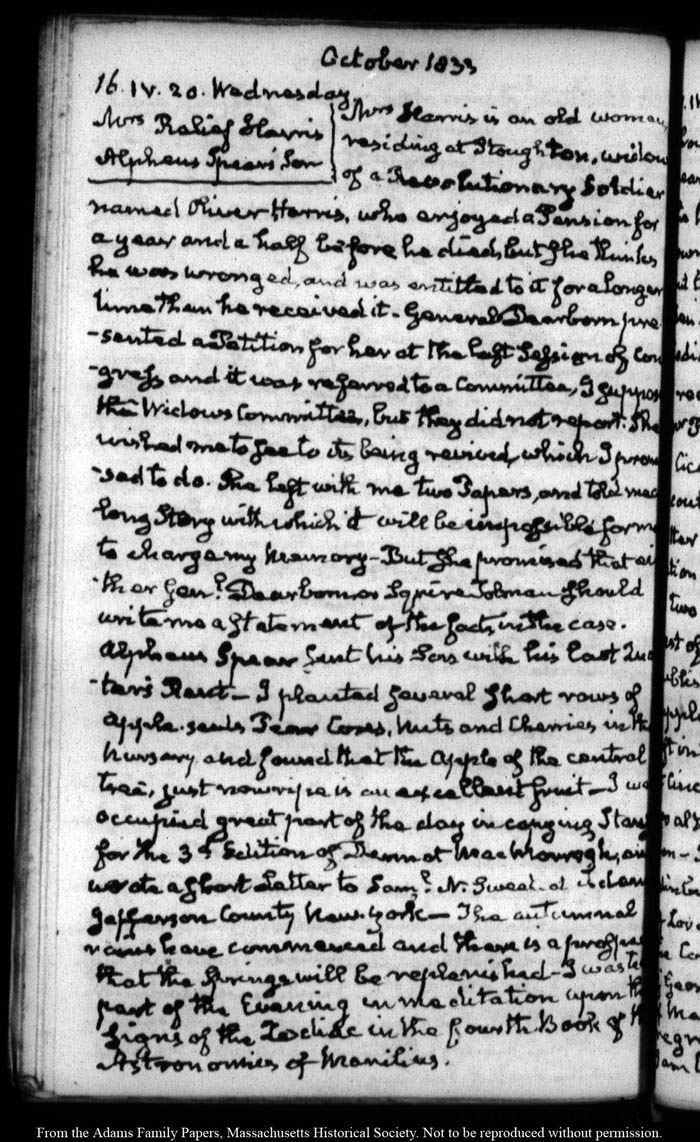 October 1833
16. IV. 20. Wednesday
Mrs Relief Harris
Alpheus Spear's Son
Mrs Harris is an old woman,
residing at Stoughton, widow
of a Revolutionary Soldier
named Oliver Harris, who enjoyed a Pension for
a year and a half before he died, but she thinks
he was wronged, and was entitled to it for a longer
time than he received it. General Dearborn pre
-sented a Petition for her at the last Session of Con
-gress and it was referred to a Committee, I suppose
the Widows Committee, but they did not report. She
wished me to see to its being revived, which I prom
-sed to do. She left with me two Papers, and told me a
long Story with which it will be impossible for me
to charge my memory - But she promised that ei
-ther Genl. Dearborn or Squire Tolman should
write me a statement of the facts in the case.
Alpheus Spear sent his Son with his last Quar
-ter's Rent - I planted several short rows of
apple-seeds Pear Cores, Nuts and Cherries in the
Nursery and found that the apple of the central
tree, just now ripe is an excellent fruit - I was
occupied great part of the day in copying Stanzas
for the 3d Edition of Dermot MacMorrogh, and
wrote a short Letter to Saml. N. Sweet at Adams
Jefferson County New-York - The autumnal
rains have commenced and there is a prospect
that the Springs will be replenished - I wasted
part of the Evening in meditation upon the
Signs of the Zodiac in the fourth Book of the
Astronomics of Manilius.
From the Adams Family Papers, Massachusetts Historical Society. Not to be reproduced without permission.